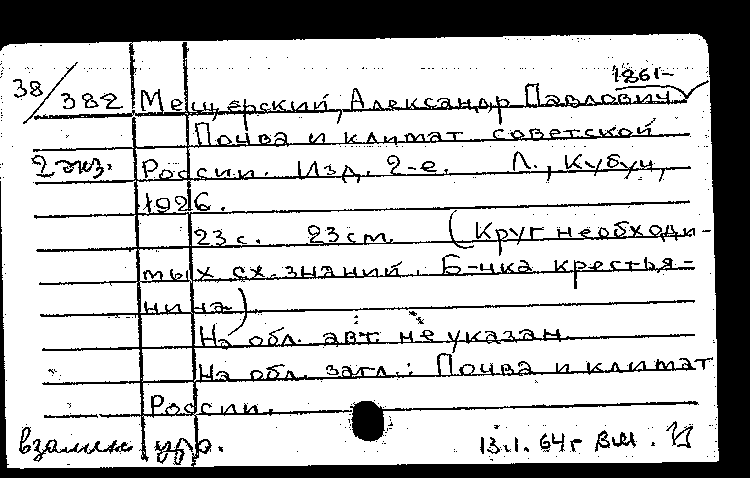 1861-
38/382 Мещерский, Александр Павлович
Почва и климат советской
2 экз. России. Изд. 2-е. Л., Кубуч,
1926.
23 с. 23 cm. (Круг необходи-
мых сх. знаний. Б-чка крестья-
нина)
На обл. авт. не указан
На обл. загл.: Почва и климат
России.
13.1.64г